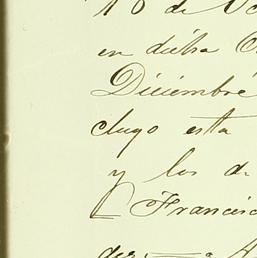 10 de Oc
en dicha C
Diciembre
clugo esta
y los de
Francisc